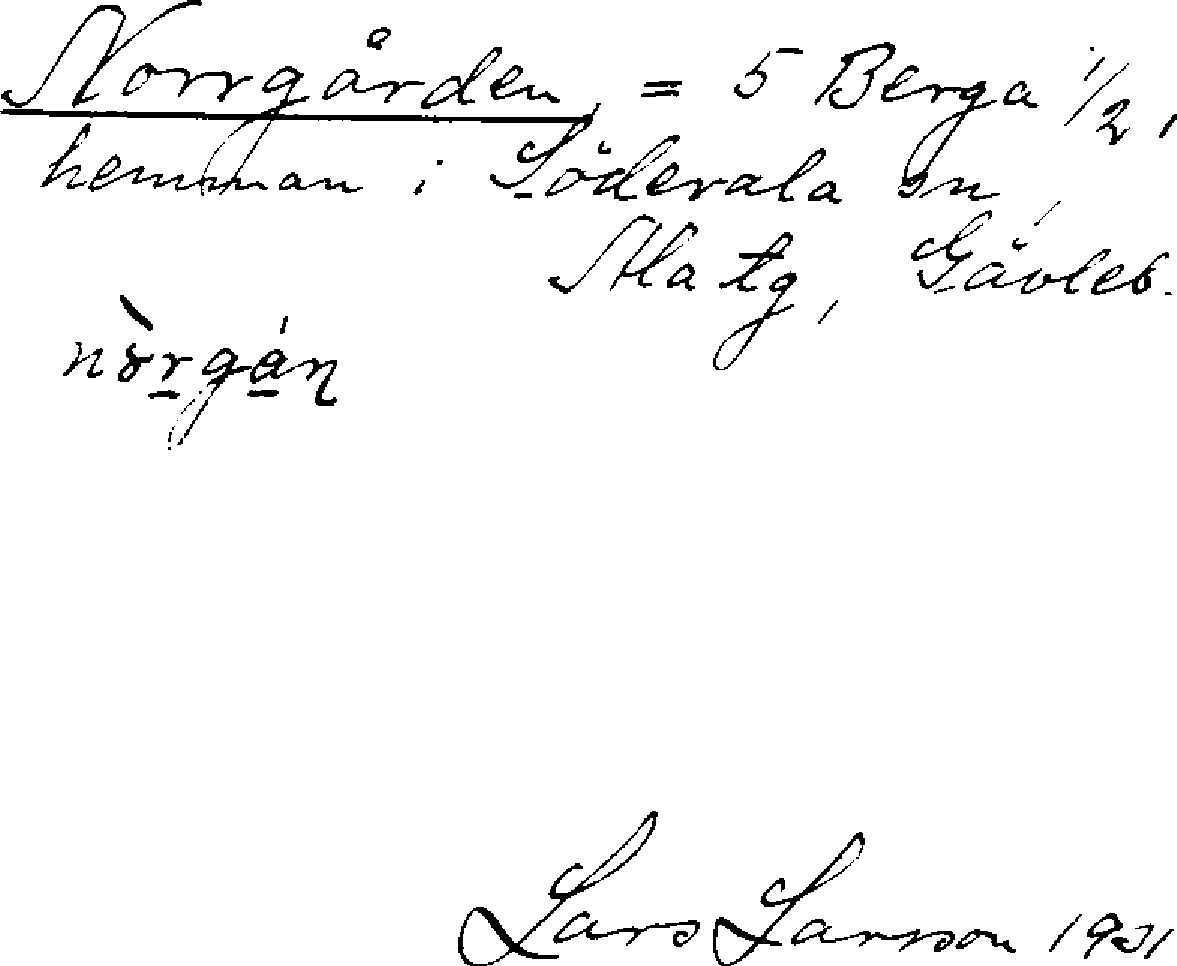 Norrgården, = 5 Berga 1/2,
hemman i Söderala sn,
Ala tg, Gävleb.
Lars Larsson 1931